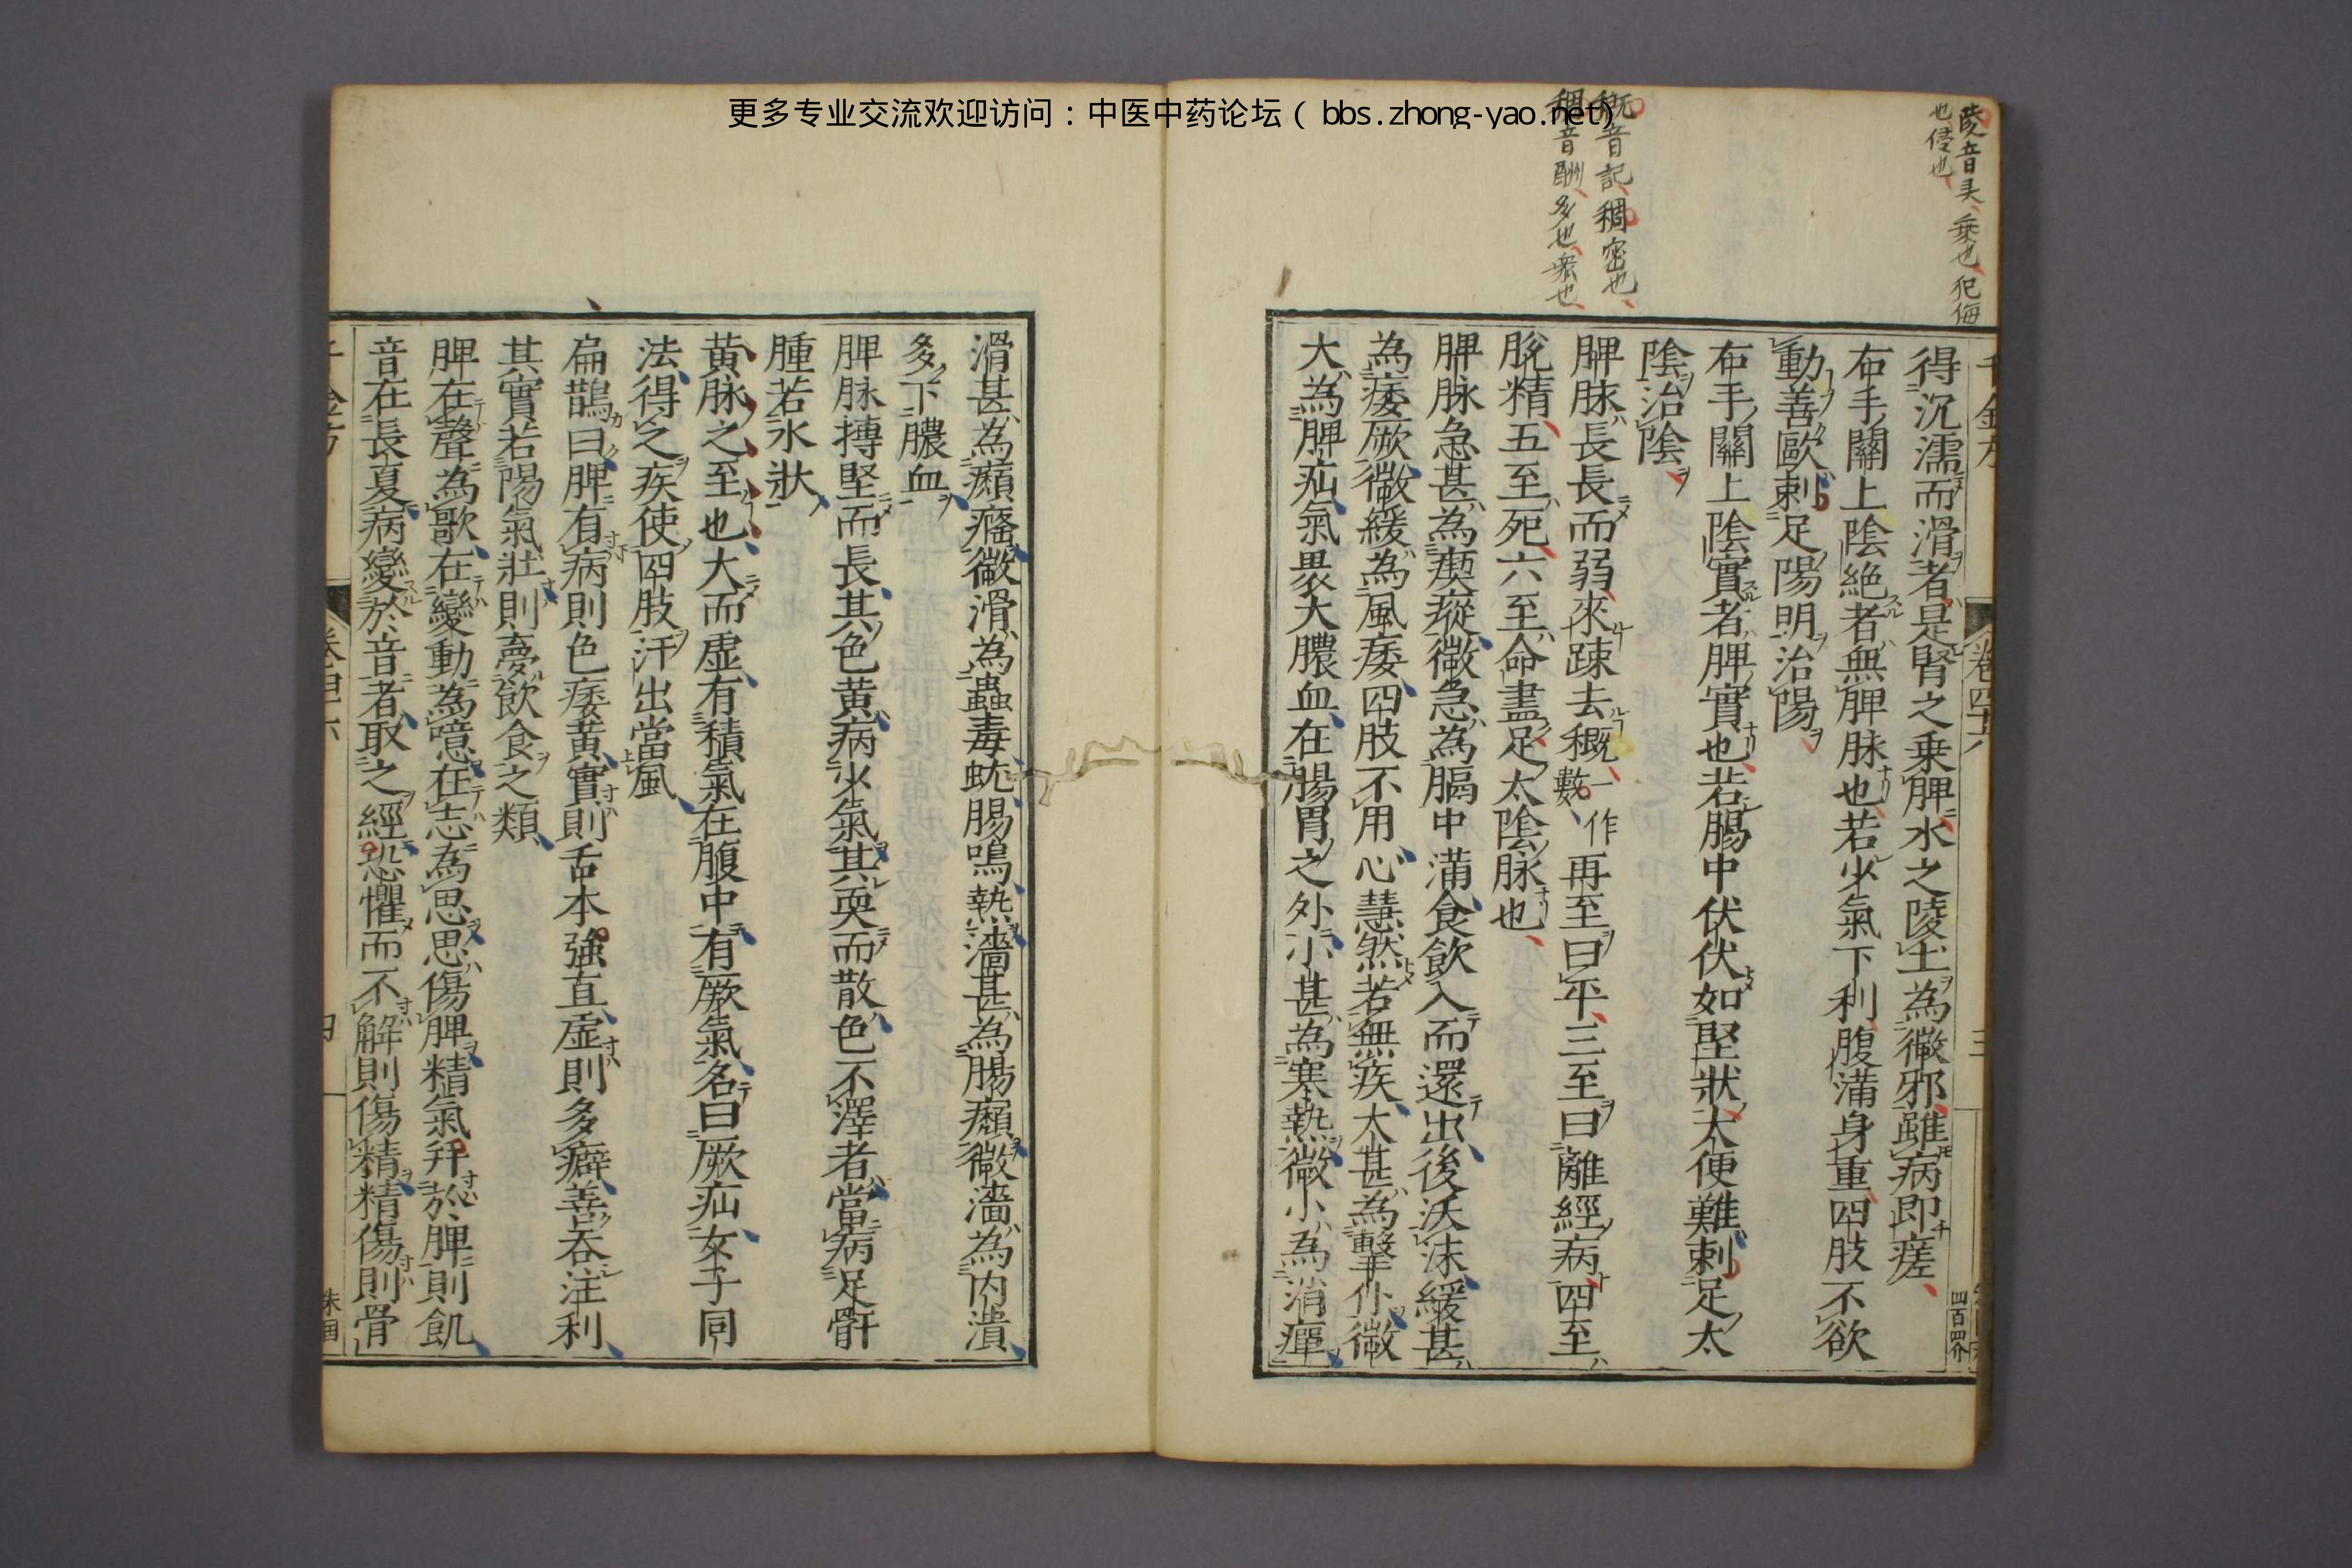 更多专业交流欢迎访问：中医中药论坛（bbs.zhong-yao.net）
陵音灵、乗也、犯侮
也侵也
穊音記、稠密也、
稠音酬、多也、衆也、
千金方
卷四十六
三
四百四个
得沉濡而滑者是腎之乗脾水之陵土為微邪雖病即瘥
布手關上陰絶者無脾脉也若少氣下利腹滿身重四肢不欲
動善歐刺足陽明治陽
布手關上陰實者脾實也若腸中伏伏如堅狀大便難刺足太
陰治陰
脾脉長長而弱來踈去穊一作數再至曰平三至曰離經病四至
脫精五至死六至命盡足太陰脉也
脾脉急甚為瘈瘲微急為膈中滿食飲入而還出後沃沫緩甚
為痿厥微緩為風痿四肢不用心慧然若無疾大甚為擊仆微
大為脾疝氣裹大膿血在腸胃之外小甚為寒熱微小為消癉
滑甚為癩癃微滑為蟲毒蚘腸鳴熱濇甚為腸癩微濇為内潰
多下膿血
脾脉搏堅而長其色黄病少氣其耎而散色不澤者當病足骭
腫若水狀
黄脉之至也大而虚有積氣在腹中有厥氣名曰厥疝女子同
法得之疾使四肢汗出當風
扁鵲曰脾有病則色痿黄實則舌本強直虚則多癖善吞注利
其實若陽氣壯則夢飲食之類
脾在聲為歌在變動為噫在志為思思傷脾精氣并於脾則飢
音在長夏病變於音者取之經恐懼而不解則傷精精傷則骨